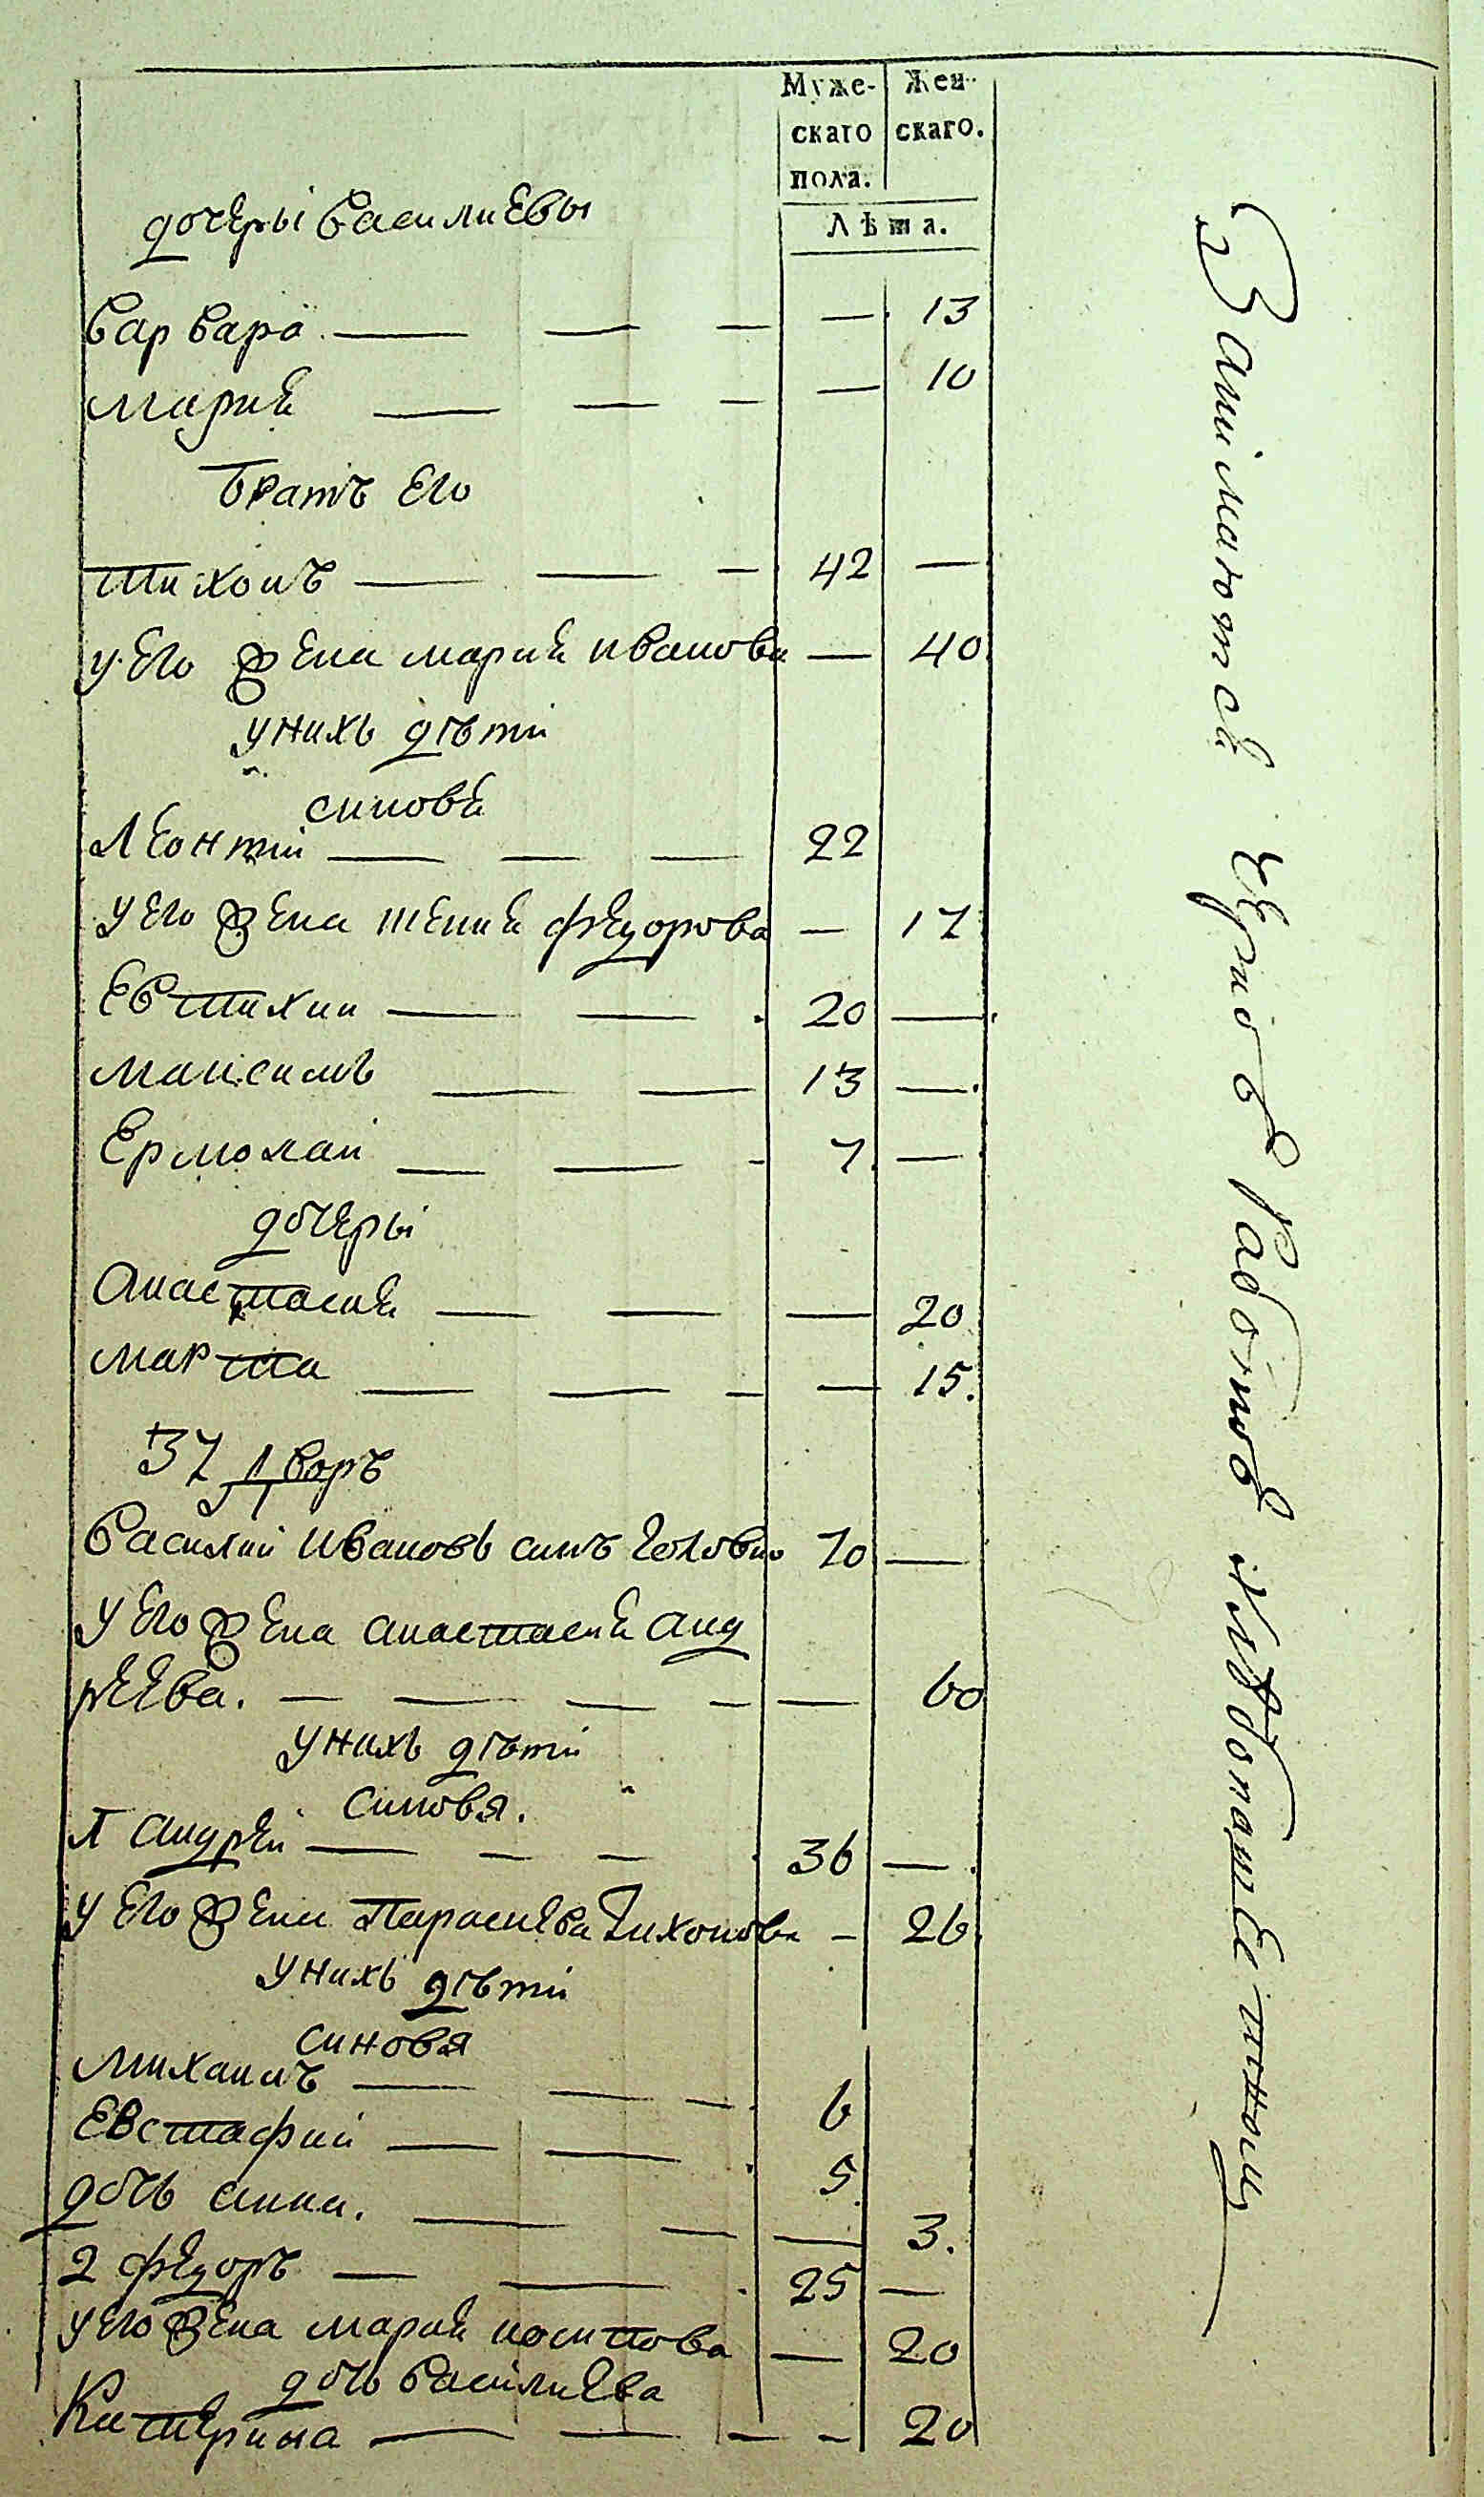 Муже- Жен-
скаго скаго.
пола.
Лѣта.
дочеры василиевы
варвара — 13
мария — 10
братъ его
тихонъ 42 —
у его жена мария иванова — 40
у нихъ дѣти
синовя
Леонтий 22
у его жена ксения федорова — 17
Евтихии 20 —
максимъ 13 —
Ермолаи 7 —
дочеры
анастасия — 20
марта — 15.
37 Дворъ
василий ивановъ синъ головко 70 —
у его жена анастасия анд
реева. — 60
у нихъ дѣти
синовя.
1 андреи 36 —
у его жена Параскева Тихонова — 26
у нихъ дѣти
синовя
михаилъ 6
Евстафий 5
дочь анна. — 3.
2 федоръ 25 —
у его жена мария иосипова — 20
дочь василиева
Катерина — 20
Занимаются чрновъ работою